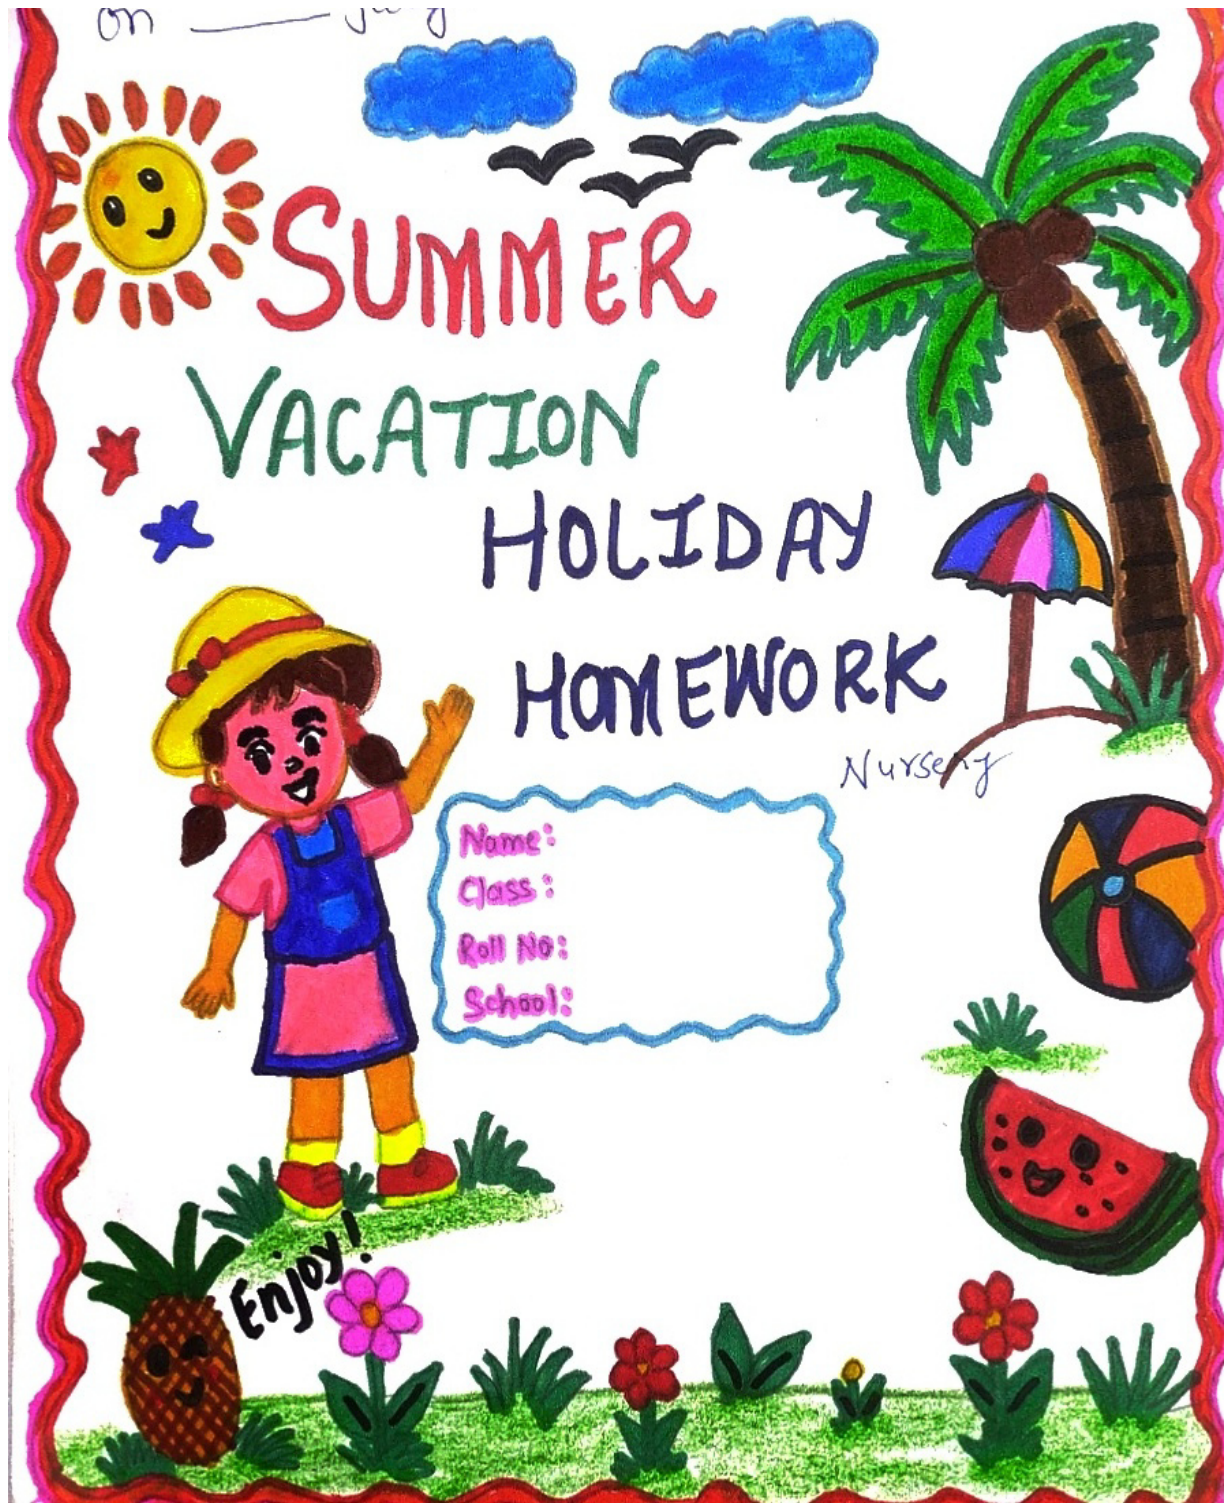 on
SUMMER
VACATION
HOLIDAY
HOMEWORK
Nursery
Name:
Class:
Roll No:
School:
Enjoy!